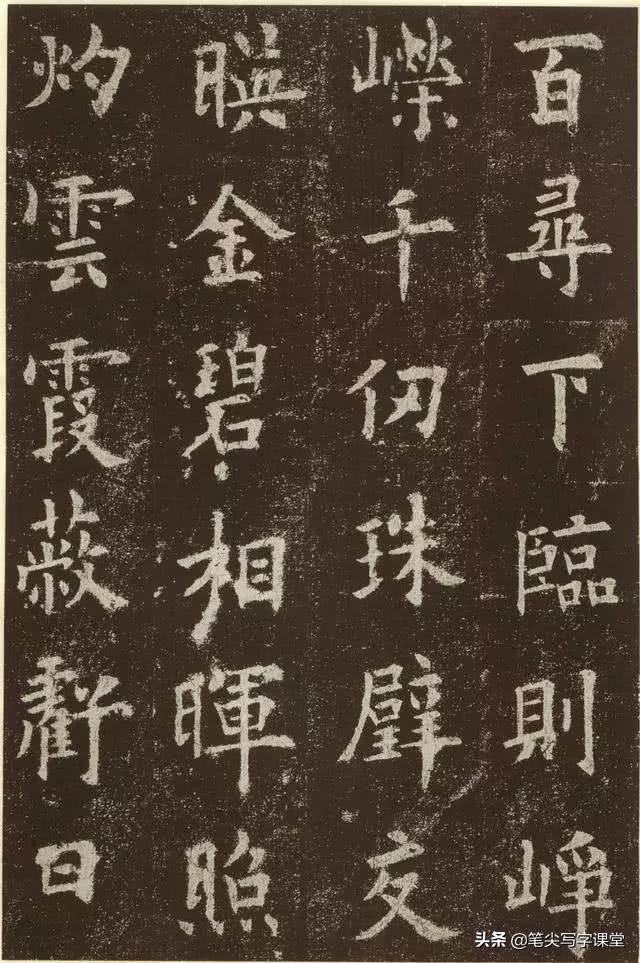 百尋下臨則崢
嶸千仞珠壁交
暎金碧相暉照
灼雲霞蔽虧日
头条 @笔尖写字课堂